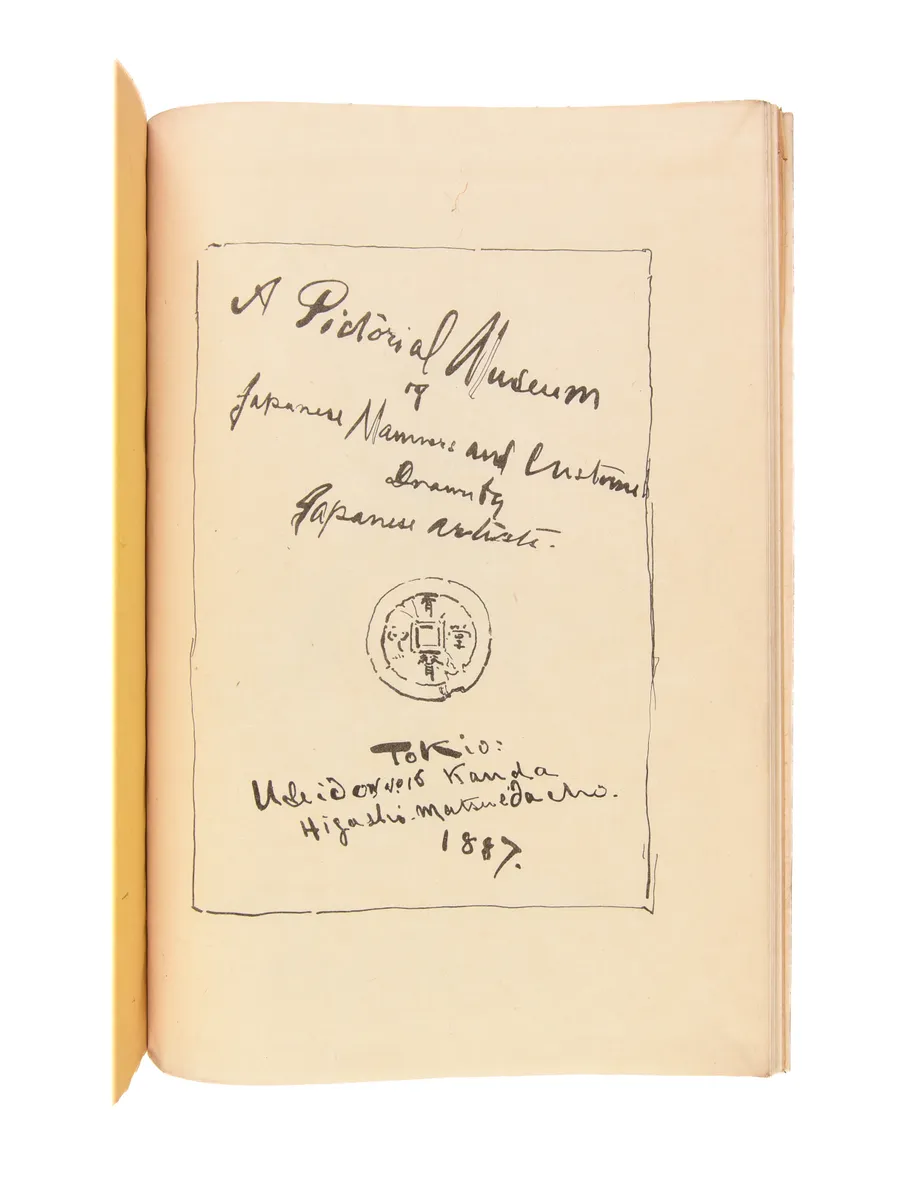 A Pictorial Museum
of
Japanese Manners and Customs
Drawn by
Japanese artists.
Tokio:
No. 16 Kanda
Higashi-Matsueda cho.
1887.